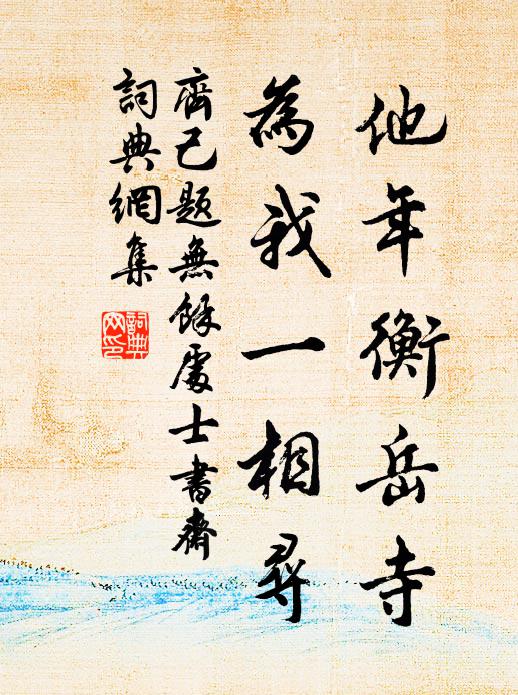 他年衡岳寺
為我一相尋
齊己題無餘處士書齋
詞典網集
詞典網印